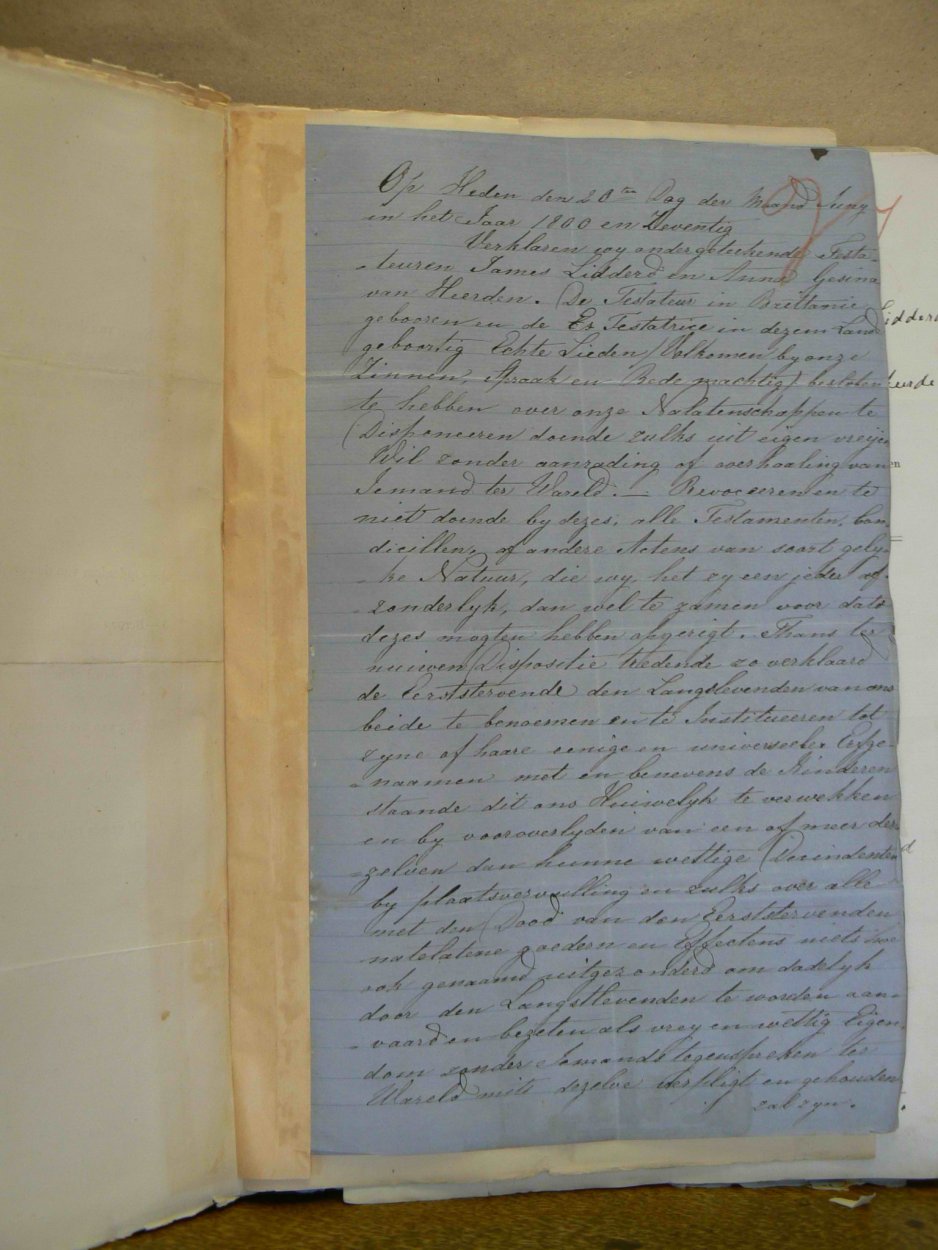 Op Heden den 20ten Dag der Maand Juny
in het Jaar 1800 en Zeventig
Verklaren wy ondergeteekende Testa-
-teuren James Lidderd en Anna Gesina
van Heerden. De Testateur in Brittanie
gebooren en de Es Testatrice in dezen Land
geboortig Echte Lieden (Volkomen by onze
Zinnen, Spraak en Rede machtig) besloten
te hebben over onze Nalatenschappen te
Disponeeren doende zulks uit eigen vreijen
Wil zonder aanrading of overhaaling van
Iemand ter Wareld. — Revoceeren en te
niet doende by dezes, alle Testamenten, Con
dicillen, of andere Actens van soort gely-
-ke Natuur, die wy, het zy een jeder af-
-zonderlyk, dan wel te zamen voor dato
dezes mogten hebben opgerigt. Thans ter
nuiwen Dispositie tredende zo verklaard
de Eerststervende den Langslevenden van ons
beide te benoemen en te Institueeren tot
zyne of haare eenige en universeele Erfge-
-naamen met en benevens de Kinderen
staande dit ons Huiwelyk te verwekken
en by vooroverlyden van een of meer der-
-zelven dan hunne wettige
by plaatsvervulling en zulks over alle
met den Dood van den Eerststervenden
natelatene goedern en Effectens niets hoe
ook genaamd uitgezonderd om dadelyk
door den Langstlevenden te worden aan-
-vaard en bezeten als vrey en wettig Eigen-
dom zonder Iemands tegenspreken ter
Wareld mits dezelve verpligt en gehouden
zal zyn.